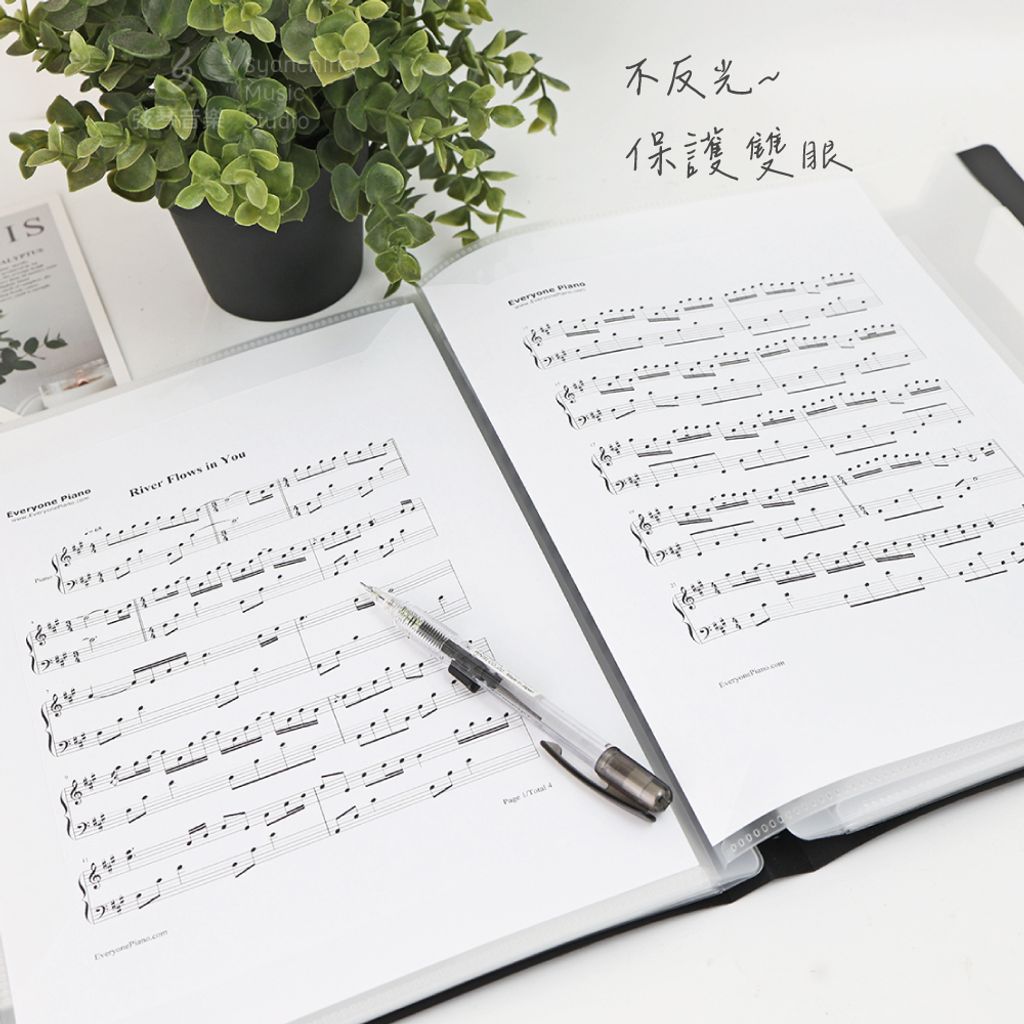 不反光~
保護雙眼
Syanching
Music
Studio
弦琴音樂
IS
River Flows in You
Everyone Piano
www.EveryonePiano.com
Piano
Page 1/Total 4
EveryonePiano.com
Everyone Piano
www.EveryonePiano.com
EveryonePiano.com